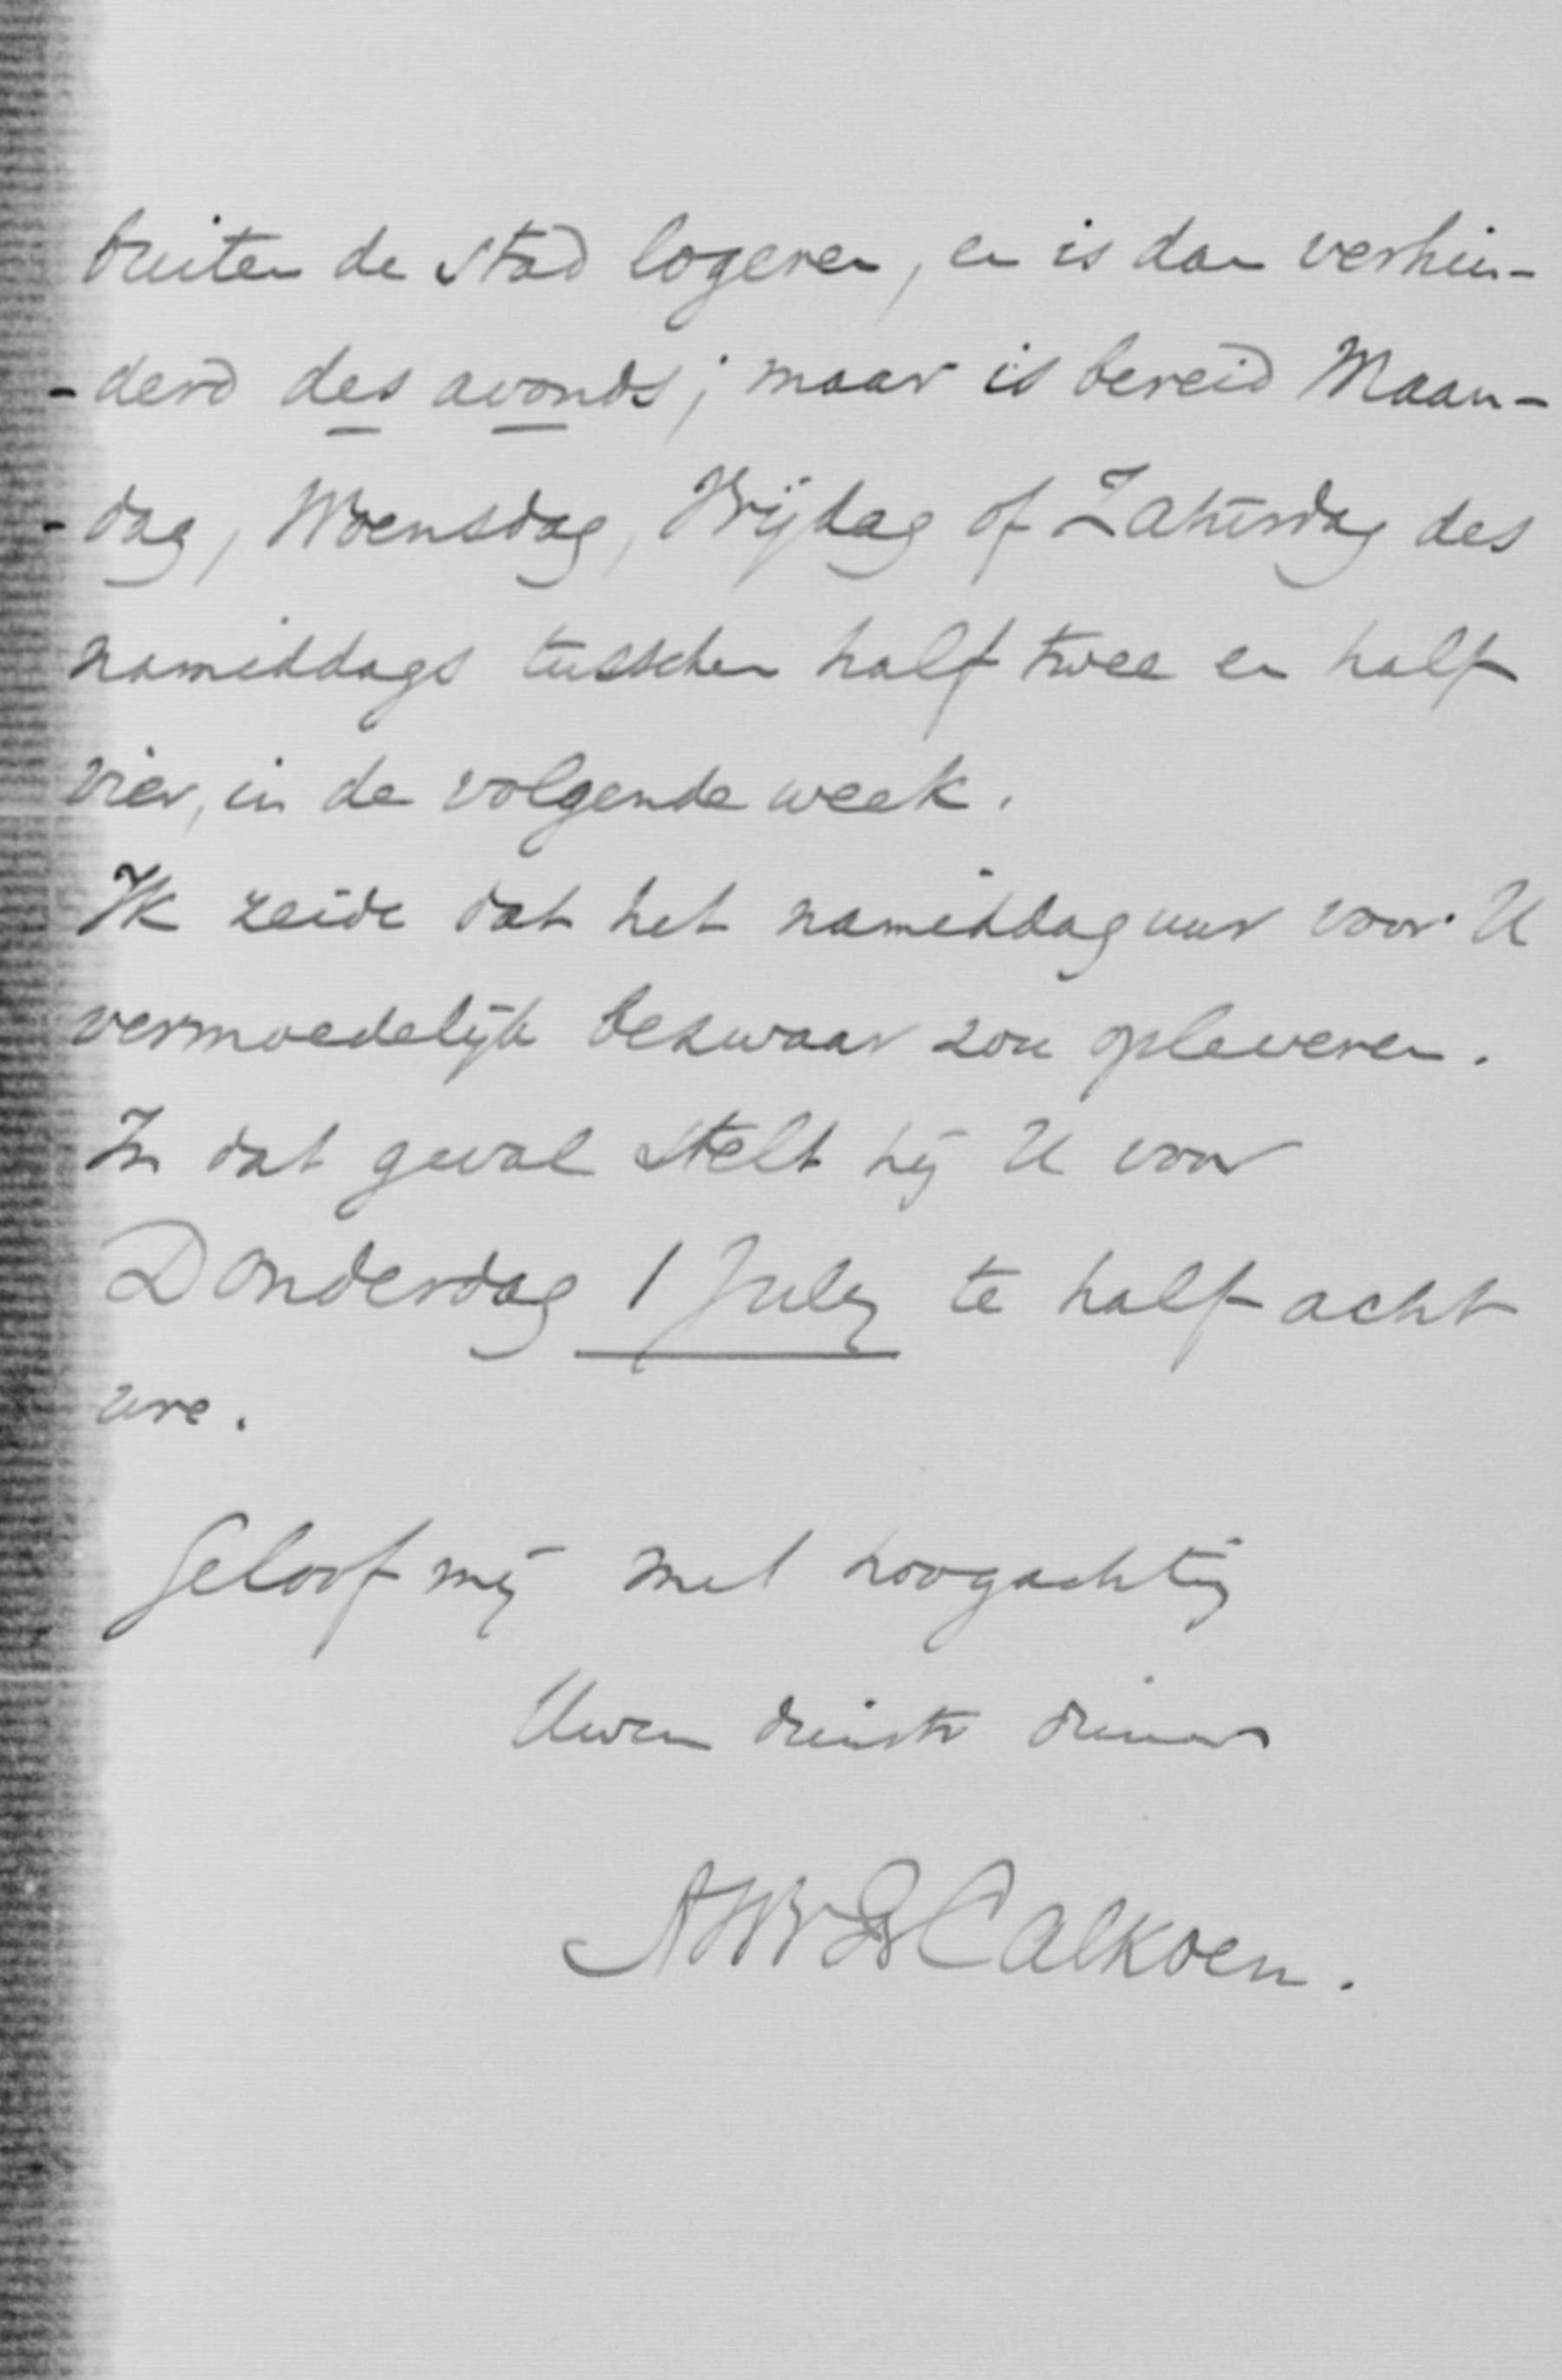 buiten de stad logeren, en is dan verhin-
-derd des avonds; maar is bereid Maan-
-dag, Woensdag, Vrijdag of Zaturdag des
namiddags tusschen half twee en half
vier, in de volgende week.
Ik zeide dat het namiddaguur voor U
vermoedelijk bezwaar zou opleveren.
In dat geval stelt hij U voor
Donderdag 1 July te half acht
ure.
Geloof mij met hoogachting
Uwen dienstv dienaar
Calkoen.